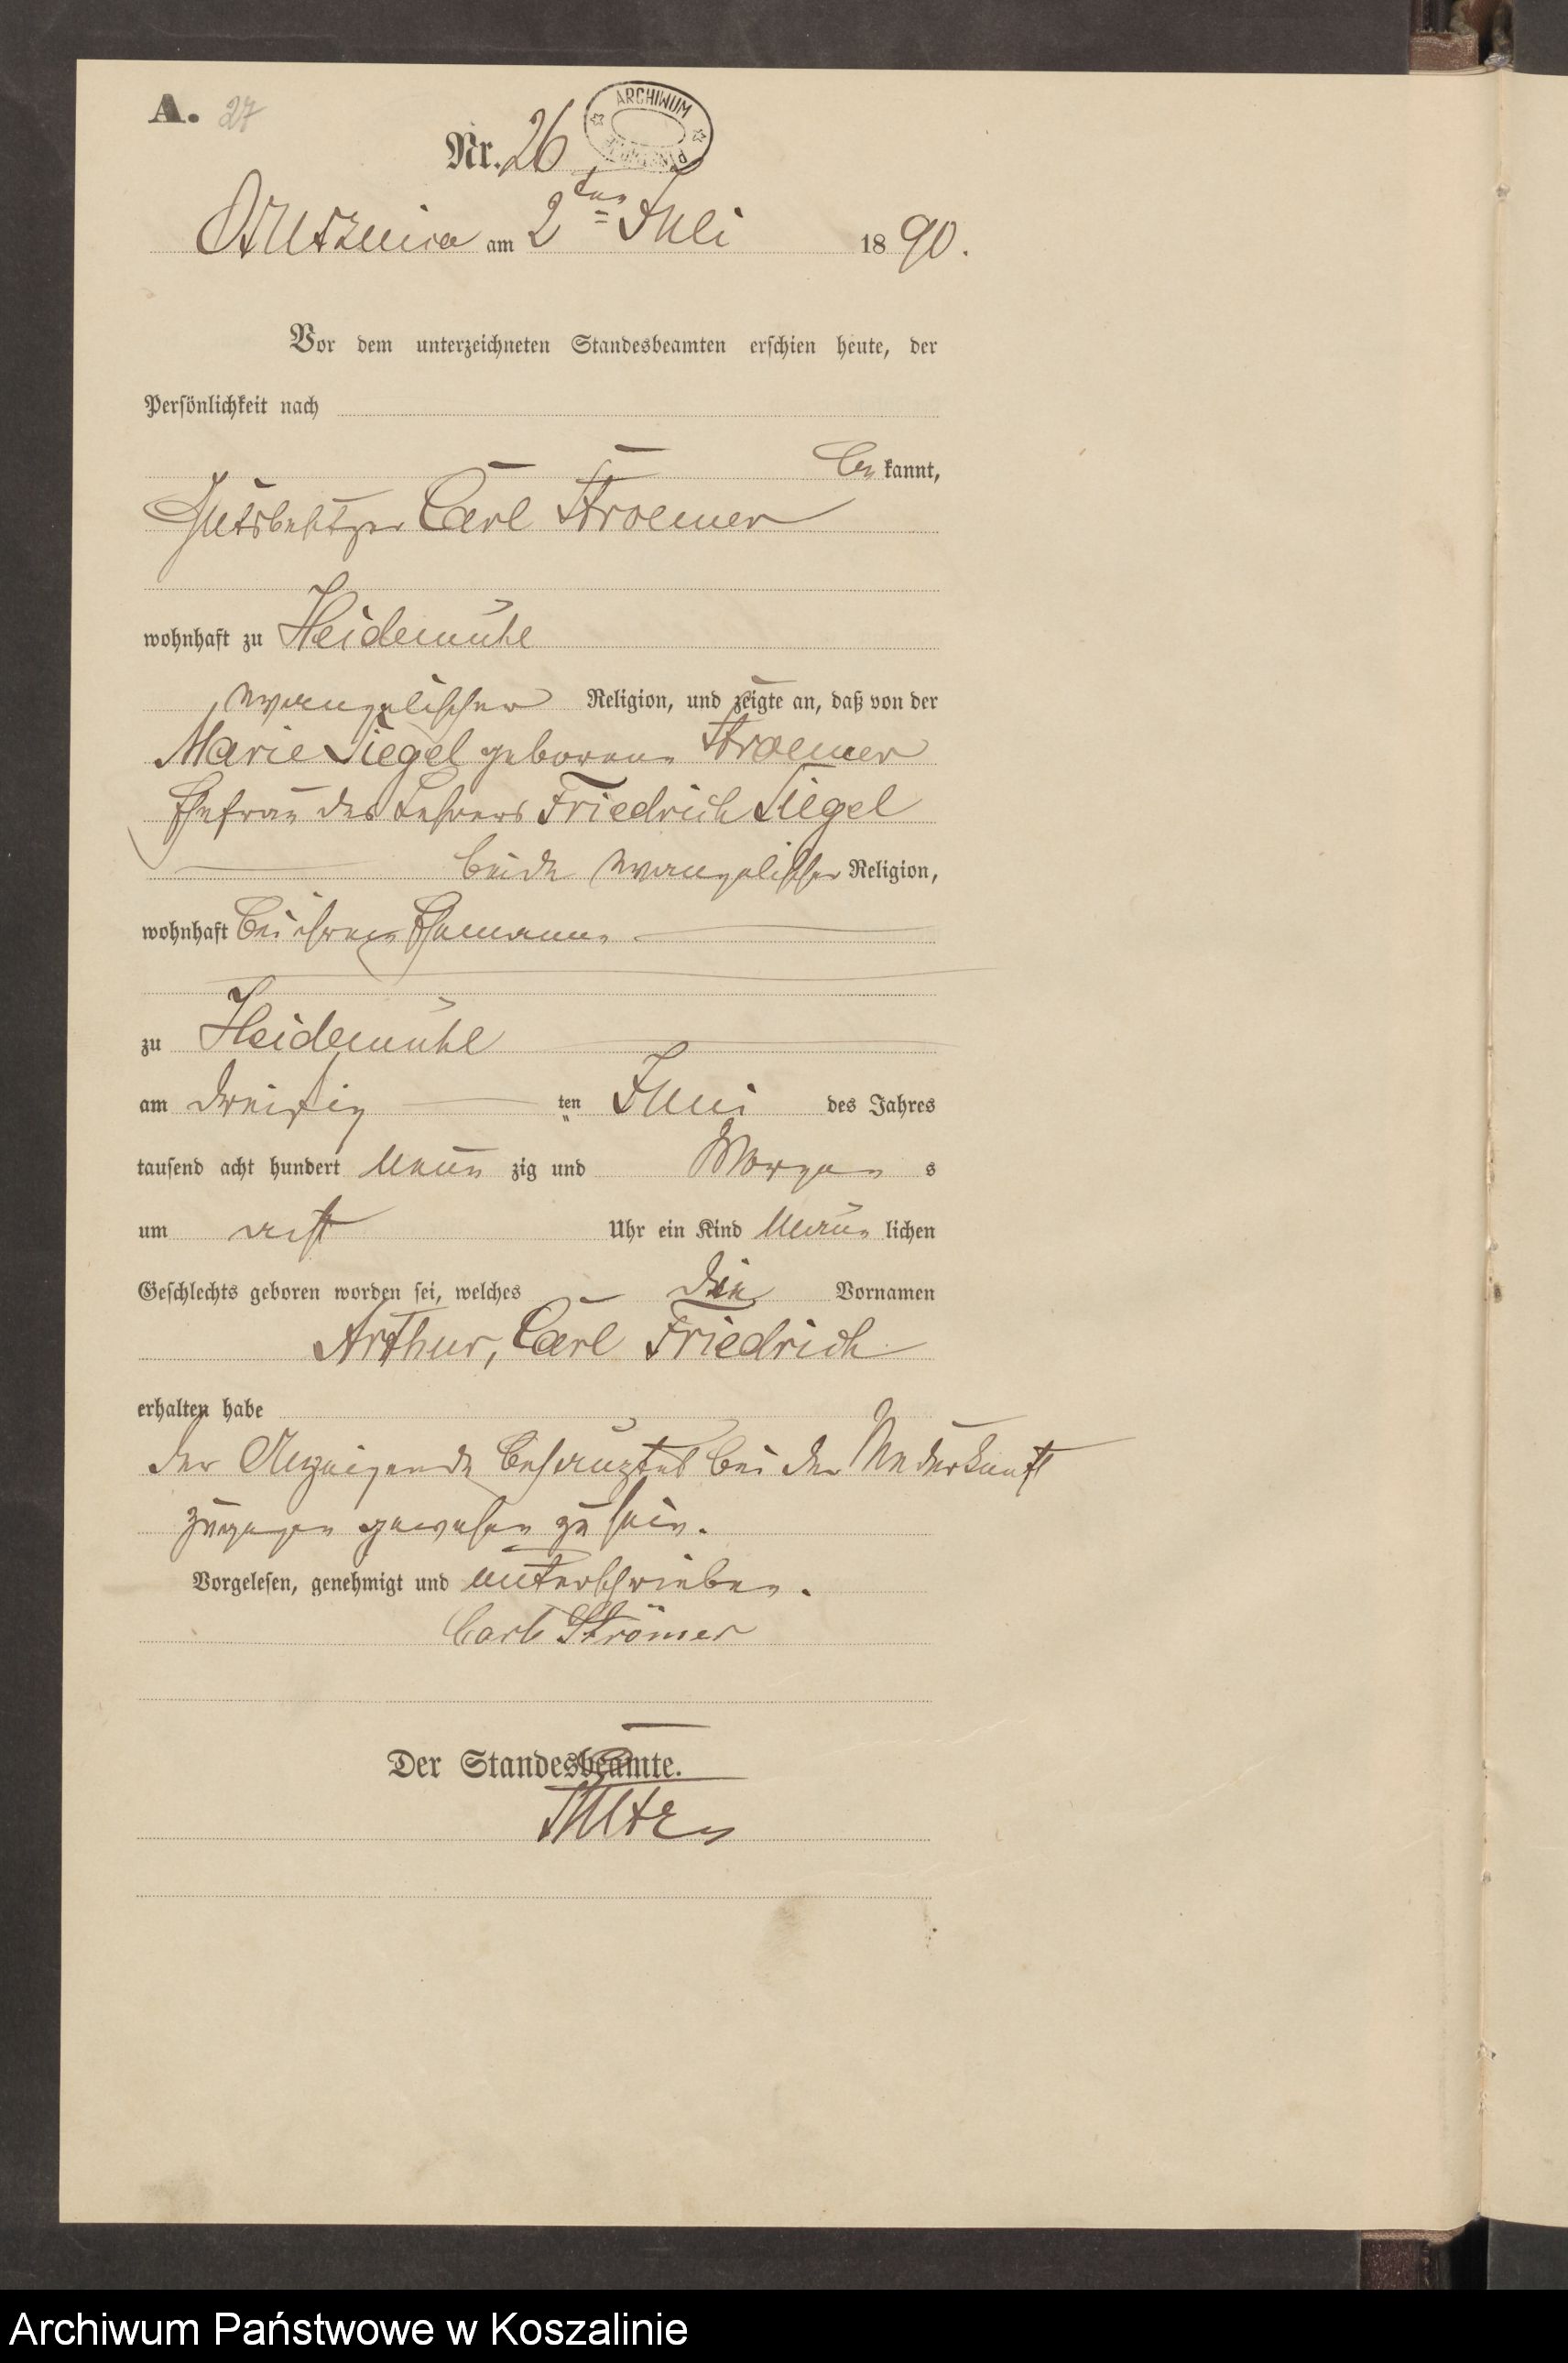 A. 27
ARCHIWUM
Nr. 26
am 2ten Juli 1890.
Vor dem unterzeichneten Standesbeamten erschien heute, der
Persönlichkeit nach
be kannt,
Gutsbesitzer Carl Stroemer
wohnhaft zu Heidemühl
evangelischer Religion, und zeigte an, daß von der
Marie Siegel geborene Stroemer
Ehefrau des Lehrers Friedrich Siegel
beide evangelischer Religion,
wohnhaft bei ihrem Ehemanne
zu Heidemühl
am dreißig ten Juni des Jahres
tausend acht hundert neun zig und Morgen s
um acht Uhr ein Kind männ lichen
Geschlechts geboren worden sei, welches die Vornamen
Arthur, Carl Friedrich
erhalten habe
der Anzeigende bei der Niederkunft
zugegen gewesen zu sein.
Vorgelesen, genehmigt und unterschrieben.
Carl Strömer
Der Standesbeamte.
Archiwum Państwowe w Koszalinie